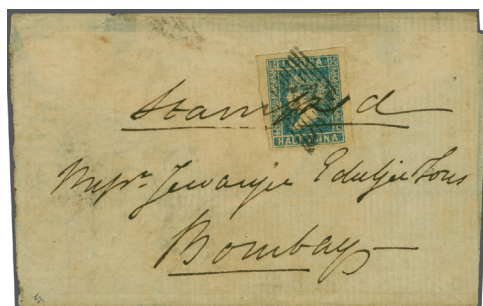 INDIA
HALF ANNA
Stamped
Messrs. Jewanjee Eduljee Sons
Bombay